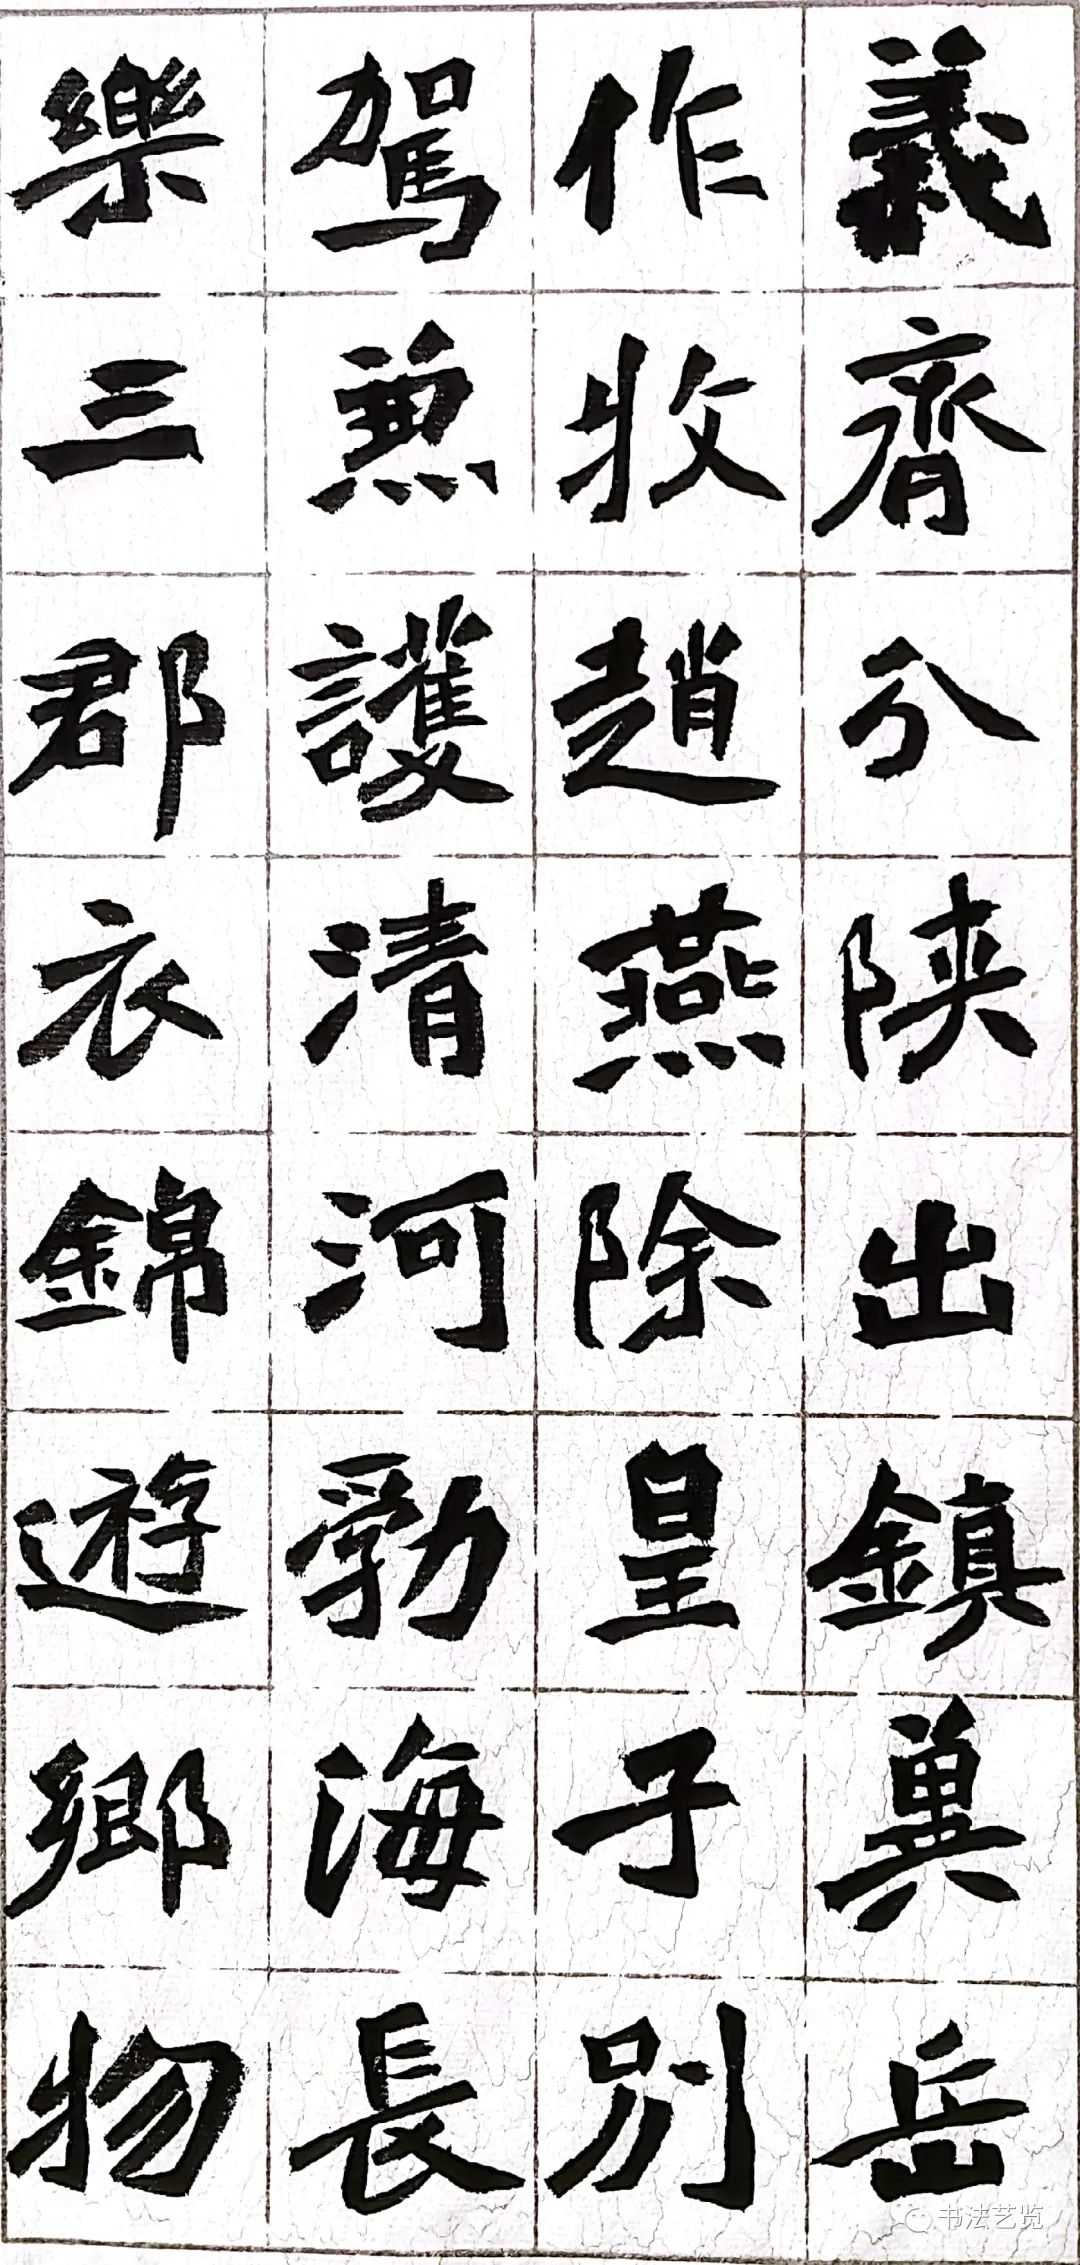 義齊分陝出鎮冀岳
作牧趙燕除皇子別
駕兼護清河勃海長
樂三郡衣錦遊鄉物
书法艺览